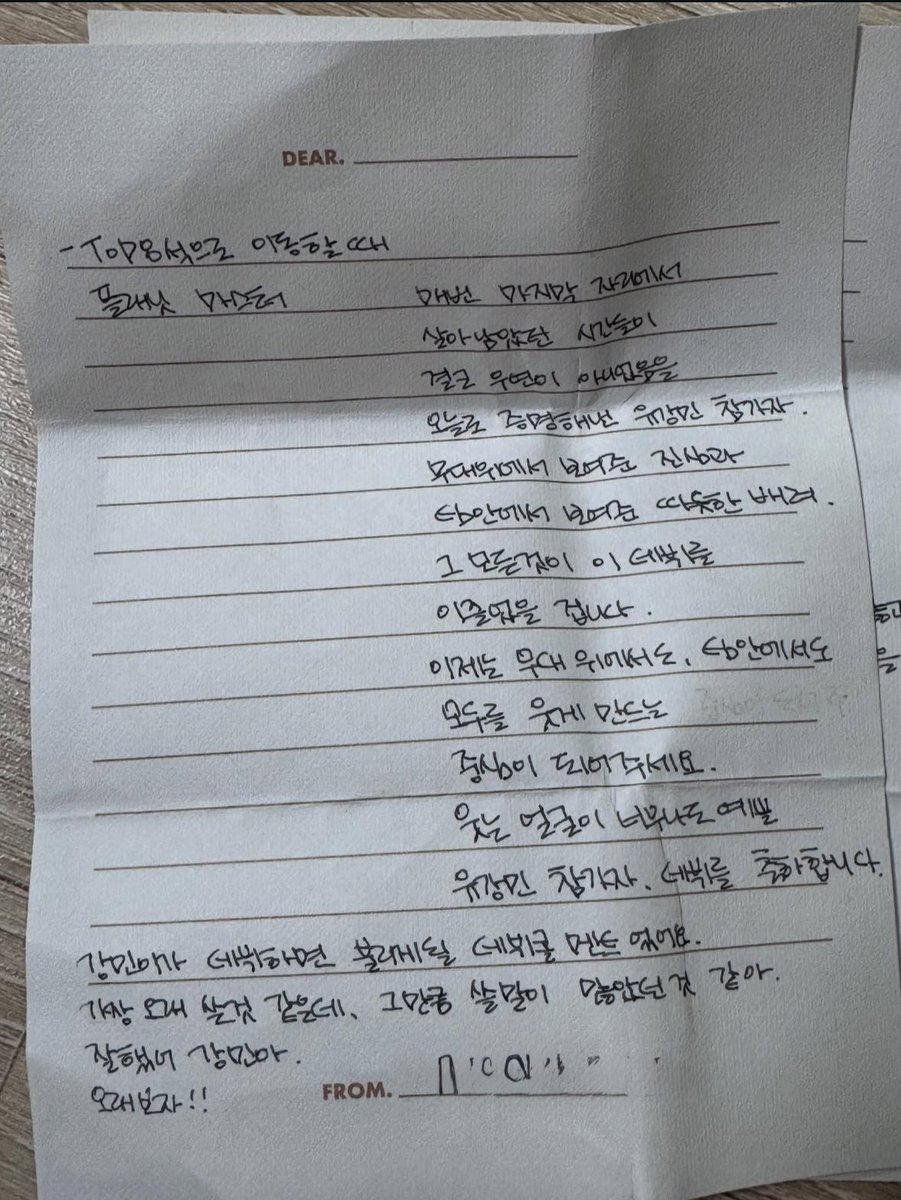 DEAR.
- TOP8석으로 이동할 때
플래닛 마스터
매번 마지막 자리에서
살아남았던 시간들이
결코 우연이 아니었음을
오늘로 증명해낸 유강민 참가자.
무대위에서 보여준 진심과
팀안에서 보여준 따뜻한 배려.
그 모든것이 이 데뷔를
이끌었을 겁니다.
이제는 무대 위에서도, 팀안에서도
모두를 웃게 만드는
중심이 되어주세요.
웃는 얼굴이 너무나도 예쁜
유강민 참가자. 데뷔를 축하합니다.
강민이가 데뷔하면 불리게될 데뷔콜 멘트 였어요.
가장 오래 쓴것 같은데, 그만큼 쓸말이 많았던것 같아.
잘했어 강민아.
오래보자!!
FROM.